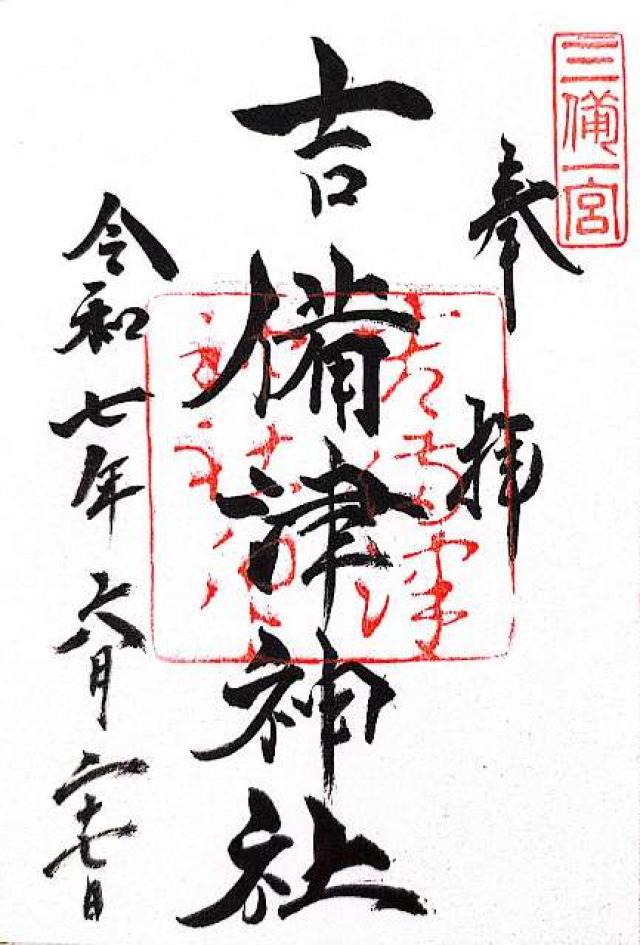 三備一宮
奉拝
吉備津神社
令和七年六月二十七日